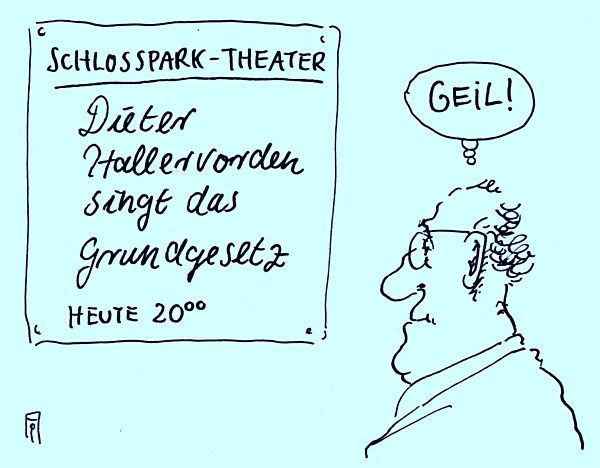 SCHLOSSPARK-THEATER
Dieter
Hallervorden
singt das
Grundgesetz
HEUTE 20⁰⁰
GEIL!